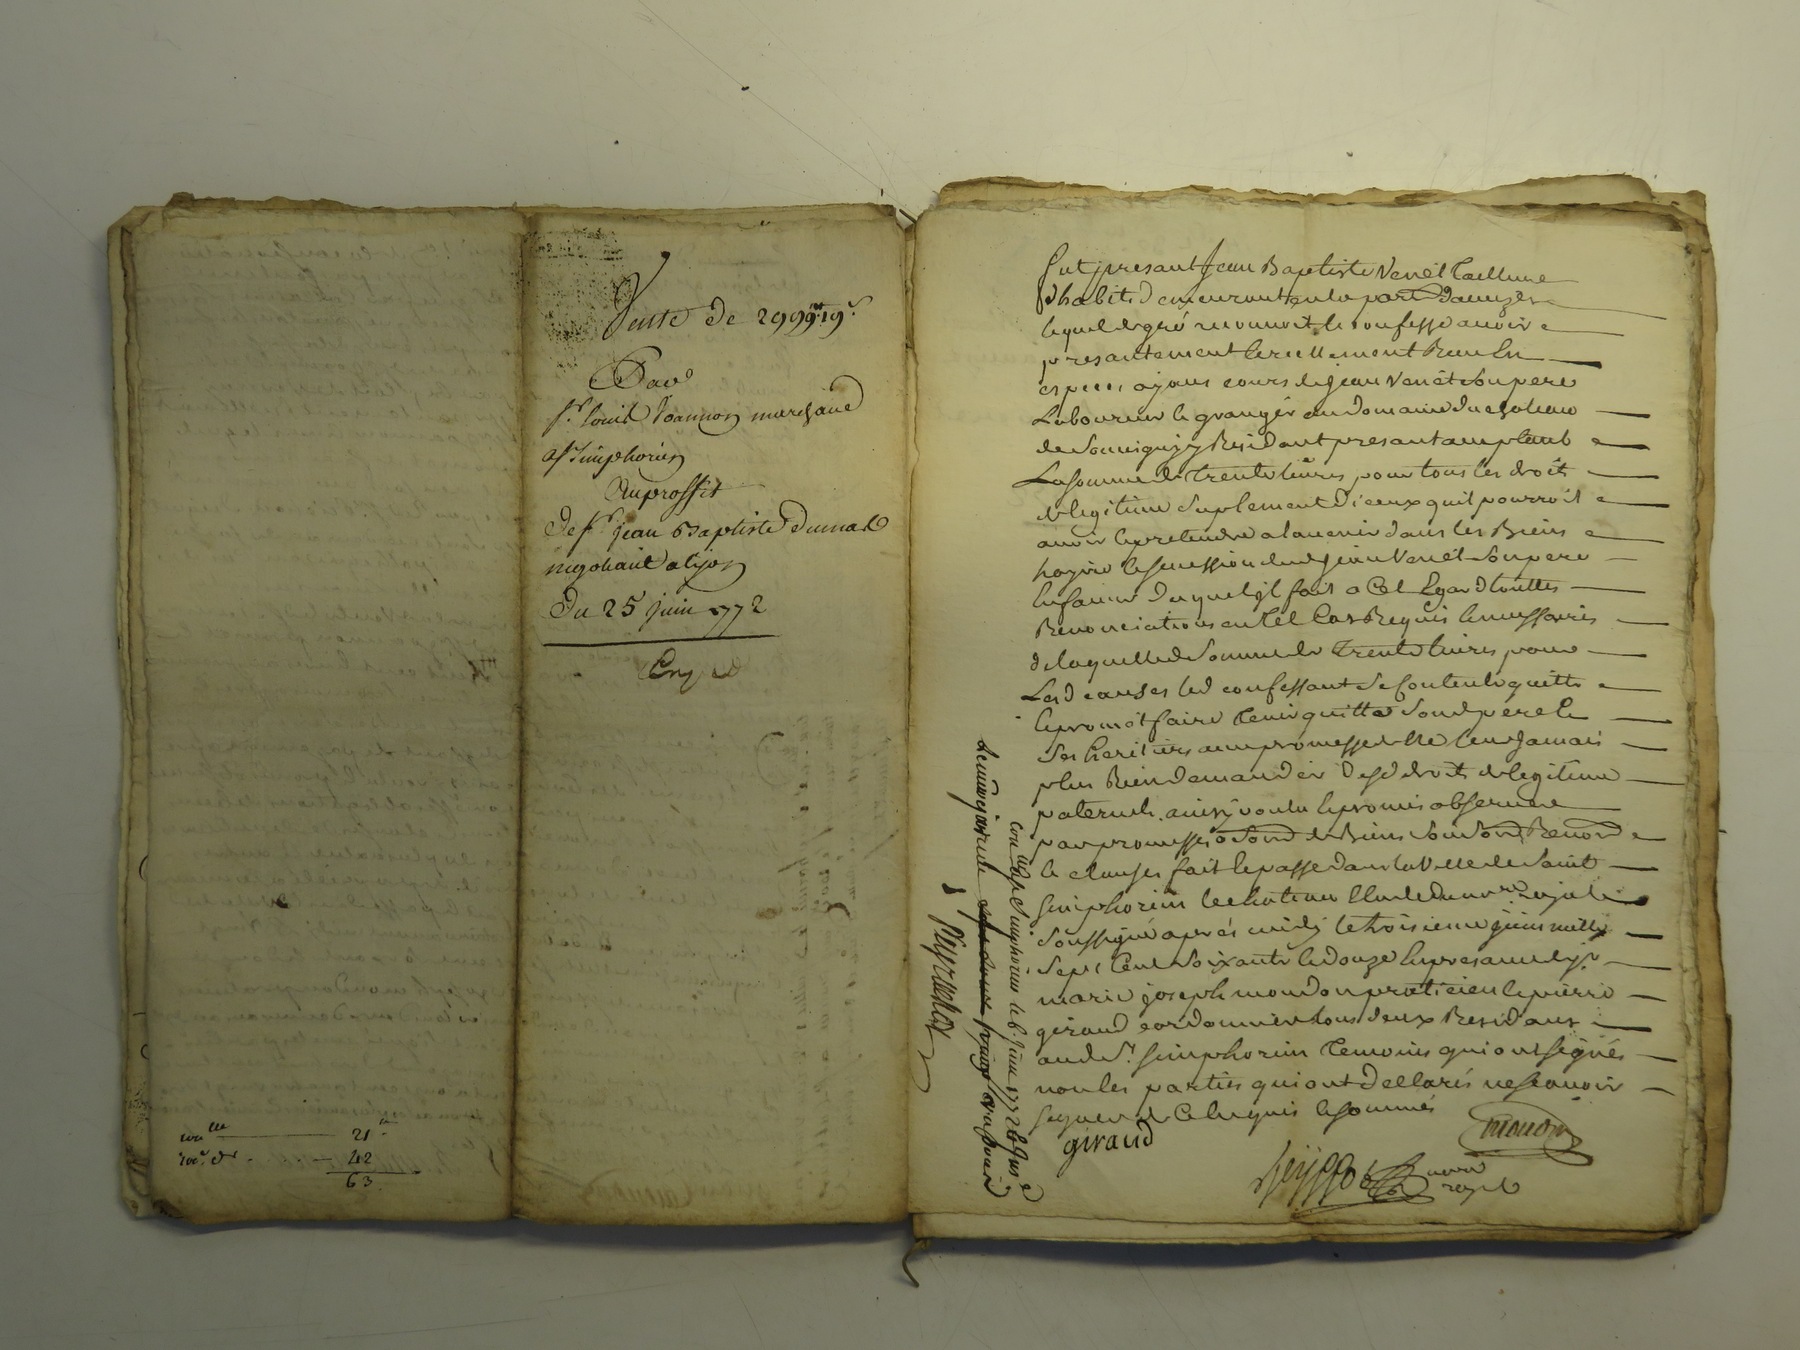 Vente de 2999ᵗᵗ 19ˢ
Par
Sʳ louis Joannon marchand
a Sᵗ Simphorien
Au proffit
De Sʳ jean Baptiste dumas
negotiant a lyon
Du 25 juin 1772
Conᵗˡᵉ 21ᵗᵗ
42
63
fut presant Jean Baptiste Venêt tailleur
dhabits demeurant en la
lequel de gré reconnoit & confesse avoir
presantement & reellement Receu En
especes ayant cours de jean Venêt son pere
Laboureur & grangér au domaine du chateau
de Residant presant acceptant
La somme de trente livres pour tous les droits
de legitime suplement diceux quil pourroit
avoir & pretendre a lavenir dans les Biens
hoyrie & succession dud jean Venêt son pere
En faveur duquel jl fait a Cet Egard touttes
Renonciations en tel Cas Requis & necessaires
de laquelle de somme de trente livres pour
Les d causes led confessant se contente quitte
& promêt faire tenir quitte sond pere &
ses heritiers avec promesse de ne leur jamais
plus Rien demander desd droits de legitime
paternels. ainsy voulu & promis observer
par promesses de Biens
& clauses fait & passé dans la Ville de Saint
Simphorien le chateau Etude du noʳᵉ royal
soussigné aprés midy le troisieme juin mille
sept Cent soixante & douze En presance de sʳ
marie joseph mondon praticien & pierre
giraud cordonnier tous deux Residants
aud Sᵗ Simphorien temoins qui ont signés
non les parties qui ont dellarés ne scavoir
signer de Ce Enquis & sommés
giraud
mondon
noʳᵉ
royal
Conᵗˡᵉ a Sᵗ Simphorien le 6 juin 1772